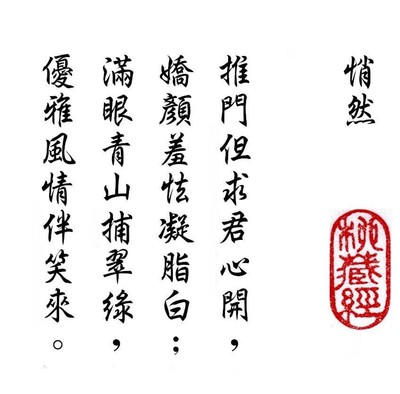 悄然
推門但求君心開，
嬌顏羞怯凝脂白；
滿眼青山捕翠綠，
優雅風情伴笑來。